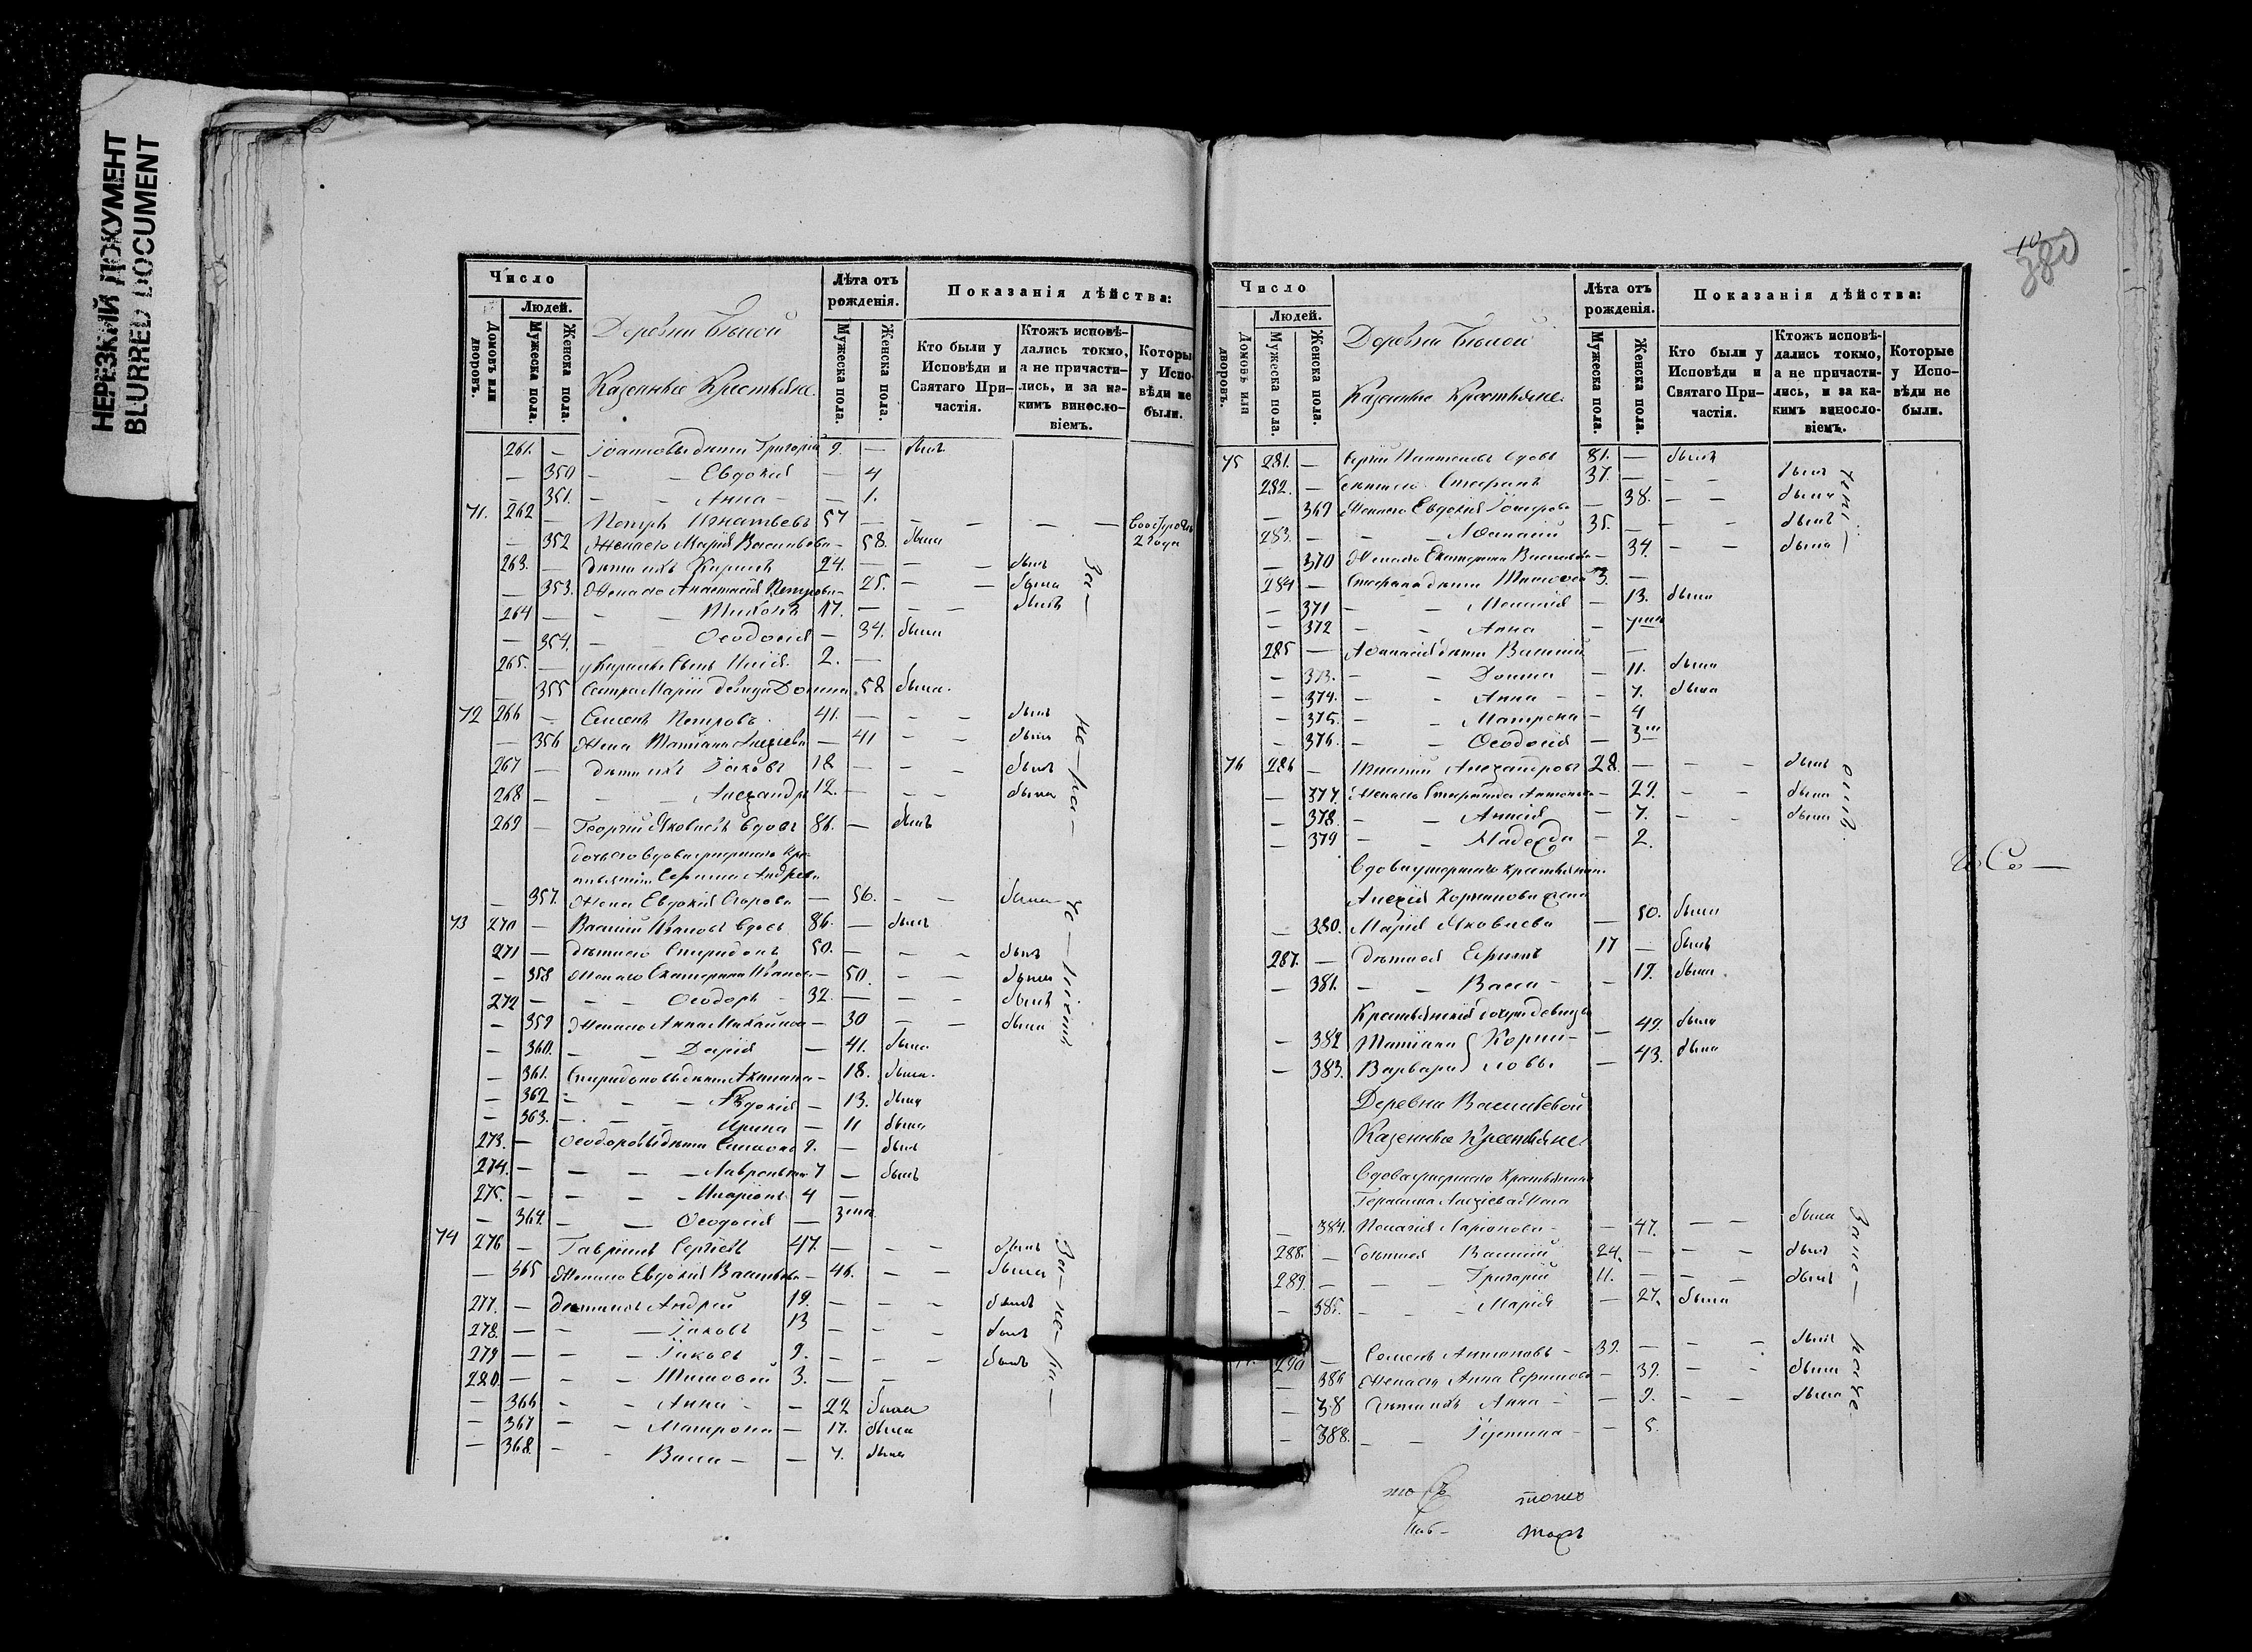 НЕРЕЗКИЙ ДОКУМЕНТ
BLURRED DOCUMENT
Число
Людей.
Домовъ или дворовъ.
Мужеска пола.
Женска пола.
Деревни
Казенные Крестьяне.
Лѣта отъ рожденія.
Мужеска пола.
Женска пола.
Показанія дѣйства:
Кто были у Исповѣди и Святаго Причастія.
Ктожъ исповѣдались токмо, а не причастились, и за какимъ винословіемъ.
Которые у Исповѣди не были.
261. — Іоанновы дѣти Григорій 9. — былъ
— 350 — — Евдокія — 4
— 351. — — Анна — — 1.
71. 262 — Петръ Игнатьевъ 57 — — — — —
2 года
— 352 Жена его Марія Васильева — 58. была
263. — дѣти ихъ Кирилъ 24. — — — былъ
— 353. Жена его Анастасія Петрова — 25. — — была
264 — — — 17. — — — былъ
— 354. — — Ѳеодосія — 34. была
265. — у Кирила сынъ Илія. 2. —
— 355 Сестра Маріи девица Домна 58 была.
72 266 — Семенъ Петровъ 41. — — — былъ
— 356 Жена Татіана Алексіева — 41 — — была
267 — дѣти ихъ Іаковъ 18 — — — былъ
268 — — — Александръ 12. — — — была
269 — Георгій Яковлевъ вдовъ 86. — былъ
Андреева
— 357. Жена Евдокія Егорова — 56. — — была
73 270 — Василій Ивановъ вдовъ 86. — былъ
271 — дѣти его Спиридонъ 50. — — — былъ
— 358 Жена его Екатерина Иванова — 50. — — была
272 — — — Ѳеодоръ — 32. — — — былъ
— 359 Жена его Анна Михайлова — 30 — — была
— 360. — — Дарія — 41. была
— 361. Спиридоновы дѣти Акилина — 18. была.
— 362 — — — Авдокія — 13. была
— 363. — — — Ирина — 11 была
273. — Ѳеодоровы дѣти Симеонъ 9. — былъ
274. — — — — Лаврентій 7 — былъ
275. — — — — Иларіонъ 4 —
— 364. — — Ѳеодосія — 3
74 276 — Гавріилъ Сергіевъ 47. — — — былъ
— 365 Жена его Евдокія Васильева — 46. — — была
277. — дѣти ихъ Андрей 19. — — — былъ
278. — — — Іаковъ 13 — — — былъ
279 — — — Іаковъ 9. — — — былъ
280. — — — Тимоѳей 3. — —
— 366 — — Анна — — 22 была
— 367 — — Матрона — 17. была
— 368. — — Васса — — 7. была
380
Число
Людей.
Домовъ или дворовъ.
Мужеска пола.
Женска пола.
Деревни
Казенные Крестьяне.
Лѣта отъ рожденія.
Мужеска пола.
Женска пола.
Показанія дѣйства:
Кто были у Исповѣди и Святаго Причастія.
Ктожъ исповѣдались токмо, а не причастились, и за какимъ винословіемъ.
Которые у Исповѣди не были.
75 281. — Сергій вдовъ 81. — былъ
282. — дѣти его Стефанъ 37. — — — былъ
— 369 Жена его Евдокія — 38. — — была
283. — — — Аѳанасій 35. — — — былъ
— 370 Жена его Екатерина Васильева — 34. — — была
284 — Стефана дѣти Тимоѳей 3. —
— 371 — — — 13. была
— 372 — — Анна —
285 — Аѳанасія дѣти Василій —
— 373. — — Домна — 11. была
— 374. — — Анна — — 7. была
— 375. — — Матрона — 4
— 376. — — Ѳеодосія — 3
76 286 — Игнатій Александровъ 28. — — — былъ
— 377. Жена его Антонова — 29. — — была
— 378. — — — 7. — — была
— 379 — — Надежда — 2.
Вдова умершаго крестьянина
Алексія жена
— 380. Марія Яковлева — 50. была
287. — Дѣти ея Ефимъ 17 — былъ
— 381. — — Васса — — 19. была.
Крестьянскія дочери девицы
— 382 Татіана — 49. была
— 383. Варвара Корниловы — 43. была
Деревня Васильевой
Казенные Крестьяне.
Вдова умершаго Крестьянина
Герасима Алексіева жена
— 384. Пелагія Ларіонова — — 47. — — была
288. — дѣти ея Василій 24. — — — былъ
289. — — — Григорій 11. — — — былъ
— 385. — — — Марія — 27. была
290 — Семенъ Антоновъ — 39. — — — былъ
— 386 Жена его Анна Ефимова — 39. — — была
— 38 Дѣти ихъ Анна — — 9. — — была
— 388. — — Іустина — — 5.